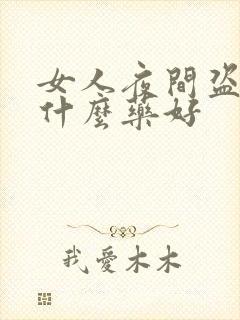 女人夜間盗
什麼藥好
我愛木木